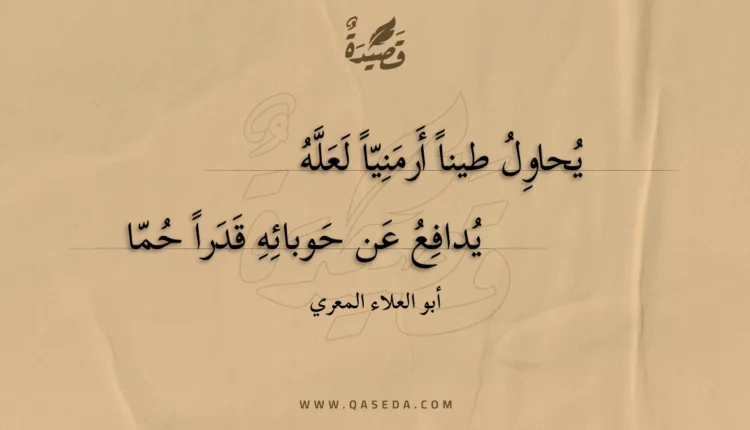 قَصِيْدَةٌ
يُحاوِلُ طيناً أَرمَنِيّاً لَعَلَّهُ
يُدافِعُ عَن حَوبائِهِ قَدَراً حُمّا
أبو العلاء المعري
WWW.QASEDA.COM